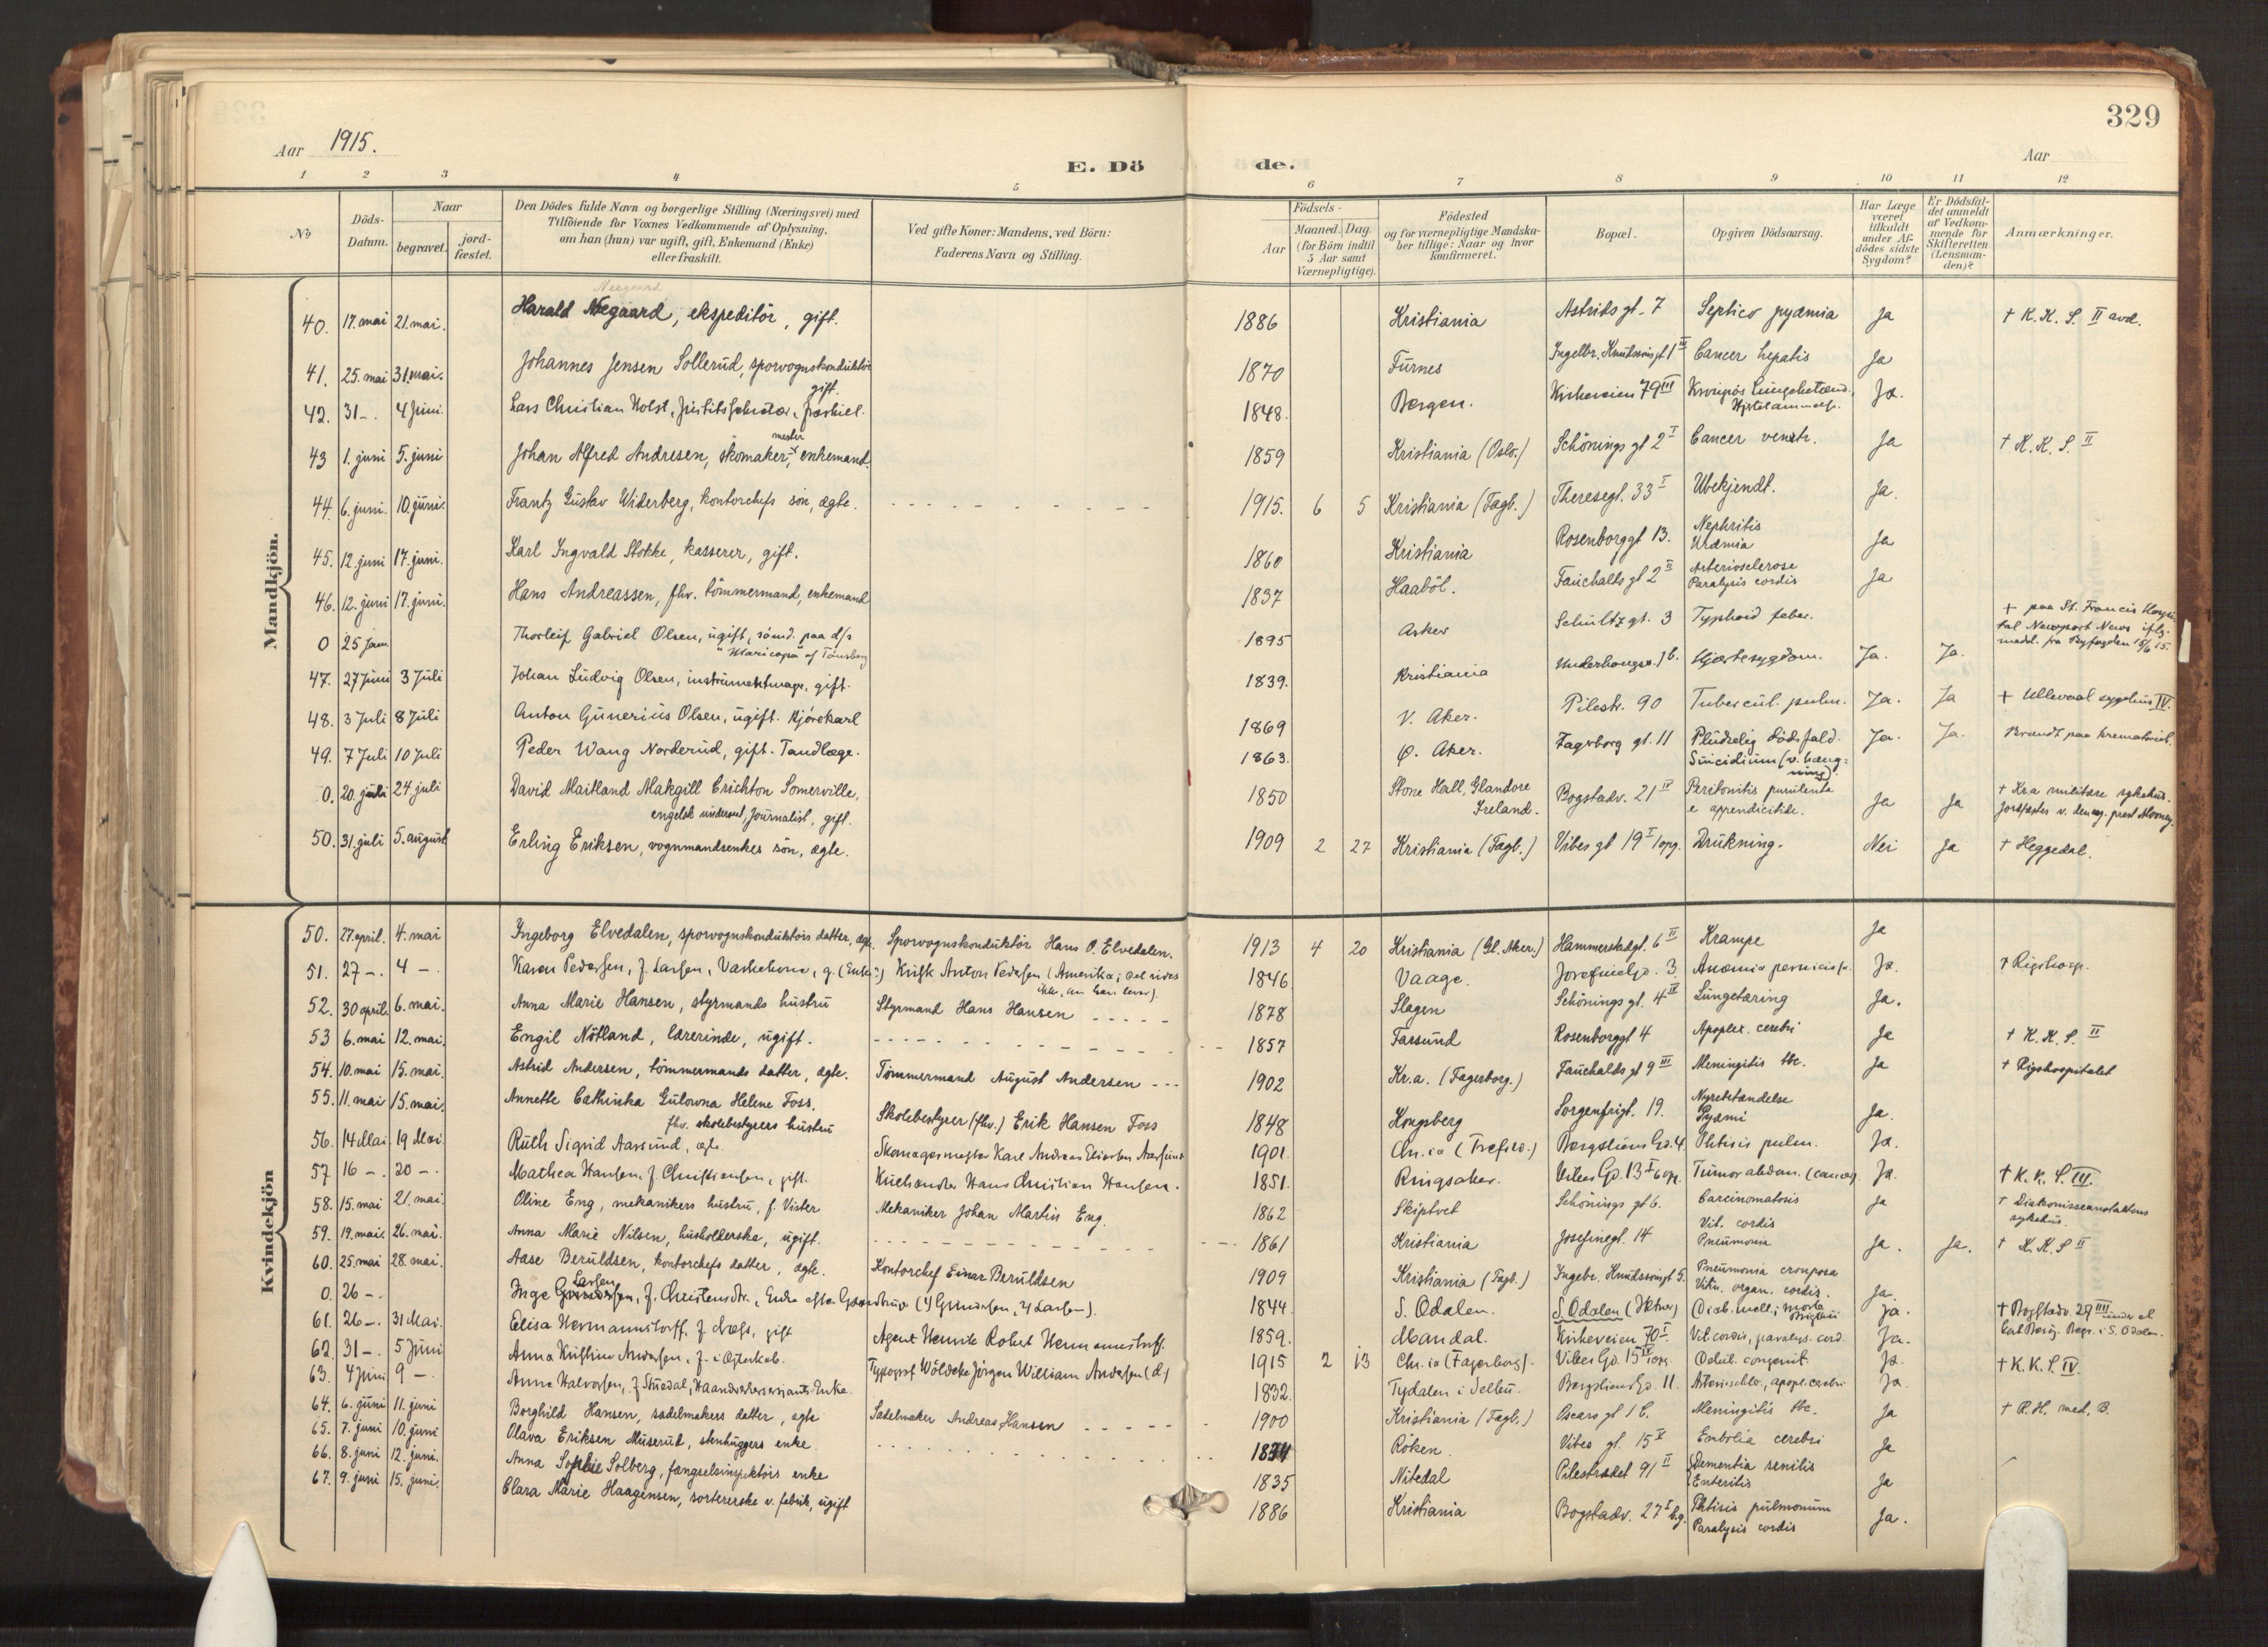 329
Aar 1915.
E. Dö de.
Aar
1 2 3 4 5 6 7 8 9 10 11 12
No
Döds-Datum.
Naar
begravet.
jord-fæstet.
Den Dödes fulde Navn og borgerlige Stilling (Næringsvei) med
Tilföiende for Voxnes Vedkommende af Oplysning,
om han (hun) var ugift, gift, Enkemand (Enke)
eller fraskilt.
Ved gifte Koner: Mandens, ved Börn:
Faderens Navn og Stilling.
Födsels-
Aar
Maaned. Dag.
(for Börn indtil
5 Aar samt
Værnepligtige).
Födested
og for værnepligtige Mandska-
ber tillige: Naar og hvor
konfirmeret.
Bopæl.
Opgiven Dödsaarsag.
Har Læge
været
tilkaldt
under Af-
dödes sidste
Sygdom?
Er Dödsfal-
det anmeldt
af Vedkom-
mende for
Skifteretten
(Lensman-
den)?
Anmærkninger.
Mandkjön.
Neegaard
40. 17. mai 21. mai. Harald Neegaard, ekspeditör, gift. 1886 Kristiania Astrids gt. 7 Septico pyæmia Ja † K. K. S. II avd.
41. 25. mai 31. mai. Johannes Jensen Sollerud, sporvognskonduktör gift. 1870 Furnes Ingelbr. Knutssöns gt 1 III Cancer hepatis Ja
42. 31 -. 4 Juni Lars Christian Holst, 1848. Bergen. Kirkeveien 79 III Ja.
43 1. juni 5. juni Johan Alfred Andresen, skomaker-mester, enkemand. 1859 Kristiania (Oslo.) Schönings gt 2 I Cancer ventr. Ja † K. K. S. II
44. 6. juni. 10. juni. Frantz Gustav Widerberg, kontorchefs sön, ægte. 1915. 6 5 Kristiania (Fagb.) Theresegt. 33 I Ubekjendt. Ja.
45. 12. juni 17. juni. Karl Ingvald Stokke, kasserer, gift. 1860 Kristiania Rosenborggt 13. Nephritis Uræmia Ja
46. 12. juni 17. juni. Hans Andreassen, fhv. tömmermand, enkemand 1837 Haaböl. Fauchalts gt 2 II Arteriosclerose Paralysis cordis Ja
0 25 Jan. Thorleif Gabriel Olsen, ugift, sömd. paa d/s "Maricopa" af Tönsberg 1895 Asker Schultz gt. 3 Typhoid feber. + paa St. Francis Hospital Newport News iflg. medd. fra Byfogden 15/6 15.
47. 27 Juni 3 Juli Johan Ludvig Olsen, instrumentmager, gift. 1839. Kristiania Hjertesygdom. Ja. Ja.
48. 3 Juli 8 Juli Anton Gunerius Olsen, ugift. Kjörekarl 1869 V. Aker. Pilestr. 90 Tubercul. pulm. Ja. Ja + Ullevaal sygehus IV.
49. 7 Juli 10 Juli Peder Wang Norderud, gift. Tandlæge. 1863. Ø. Aker. Fagerborg gt. 11 Pludselig dödsfald. Suicidium (v. hængning). Ja. Ja. Brændt paa krematoriet.
0. 20. juli 24. juli David Maitland Makgill Crichton Somerville, engelsk undersaat, journalist, gift. 1850 Stone Hall, Glandore Ireland. Bogstadv. 21 IV Peritonitis purulenta e appendicitide. Ja Ja † Kra militære sykehus. Jordfæstes v. den eng. prest Mooney.
50. 31. juli 5. august Erling Eriksen, vognmandsenkes sön, ægte. 1909 2 27 Kristiania (Fagb.) Vibes gt 19 I opg. Drukning. Nei Ja † Heggedal.
Kvindekjön
50. 27. april. 4. mai Ingeborg Elvedalen, sporvognskonduktörs datter, ægte. Sporvognskonduktör Hans O. Elvedalen. 1913 4 20 Kristiania (Gl. Aker.) Hammerstadgt. 6 II Krampe Ja
51. 27 -. 4 -. Karen Pedersen, f. Larsen, Vaskekone, g. (Enke?) Anton Pedersen (Amerika; det vides ikke, om han lever). 1846 Vaage. Josefinegd. 3. Anæmia pernicios. Ja. † Rigshosp.
52. 30 april. 6. mai. Anna Marie Hansen, styrmands hustru Styrmand Hans Hansen 1878 Slagen Schönings gt. 4 IV Lungetæring Ja.
53 6. mai 12. mai. Engil Nötland, lærerinde, ugift. 1857 Farsund Rosenborggt 4 Apoplex. cerebri Ja † K. K. S. II
54. 10. mai 15. mai. Astrid Andersen, tömmermands datter, ægte. Tömmermand August Andersen 1902 Kr.a. (Fagerborg.) Fauchalds gt 9 III Meningitis tbc. Ja † Rigshospitalet
55. 11. mai 15. mai. Annette Cathinka Gulowna Helene Foss, fhv. skolebestyrers hustru Skolebestyrer (fhv.) Erik Hansen Foss 1848 Kongsberg Sorgenfrigt. 19. Nyrebetændelse Pyæmi Ja.
56. 14 Mai 19 Mai Ruth Sigrid Aarsund, ægte Skomagermester Karl Andreas Eliassen Aarsund 1901. Chr.ia (Trefold.) Bergsliens Gd. 4. Phtisis pulm. Ja.
57. 16 -. 20 -. Mathea Hansen, f. Christiansen, gift. Hans Christian Hansen. 1851. Ringsaker. Vibes Gd. 13 I opg. Tumor abdom. (cancer) Ja. † K. K. S. III.
58. 15. mai 21. mai. Oline Eng, mekanikers hustru, f. Vister Mekaniker Johan Martin Eng. 1862 Skiptvet Schönings gt 6. Carcinomatosis Ja † Diakonisseanstaltens sykehus.
59. 19. mai. 26. mai. Anna Marie Nilsen, husholderske, ugift. 1861 Kristiania Josefinegt. 14 Vit. cordis Pneumonia Ja. Ja. † K. K. S II
60. 25. mai 28. mai. Aase Beruldsen, kontorchefs datter, ægte. Kontorchef Einar Beruldsen 1909 Kristiania (Fagb.) Ingebr. Knudssöns gt 5. Pneumonia crouposa Vitium organ. cordis. Ja.
0. 26 -. Inge Larsen, f. Christensdtr., Enke efter 1844. S. Odalen. S. Odalen Ja. † Bogstadv 29 III
61. 26 -. 31 Mai. Elisa Hermannstorff, f. Næss, gift Agent Henrik Robert Hermannstorff. 1859. Mandal. Kirkeveien 70 I. Vit. cordis, paralys. cord. Ja.
62. 31 -. 5 Juni Anna Kristine Andersen, f. i Ægteskab. Typograf Wöldeke Jörgen William Andersen (d.) 1915 2 13 Chr.ia (Fagerborg). Vibes Gd. 15 IV opg. Debil. congenit. Ja. † K. K. S. IV.
63. 4 Juni 9 -. Anne Halvorsen, f. Stuedal, Haandverkersvends Enke. 1832. Tydalen i Selbu. Bergsliens Gd. 11. Arterioscler., apopl. cerebri Ja.
64. 6. juni 11. juni Borghild Hansen, sadelmakers datter, ægte Sadelmaker Andreas Hansen 1900 Kristiania (Fagb.) Oscars gt 1 b. Meningitis tbc. Ja † R. H. med. B.
65. 7. juni 10. juni Olava Eriksen Muserud, stenhuggers enke 1834 Röken. Vibes gt. 15 V Embolia cerebri Ja
66. 8. juni 12. juni. Anna Sophie Solberg, fængselsinspektörs enke 1835 Nitedal Pilestrædet 91 II Dementia senilis Enteritis Ja
67. 9. juni 15. juni. Clara Marie Haagensen, sortererske v. fabrik, ugift 1886 Kristiania Bogstadv. 27 I b.g. Phtisis pulmonum Paralysis cordis Ja.